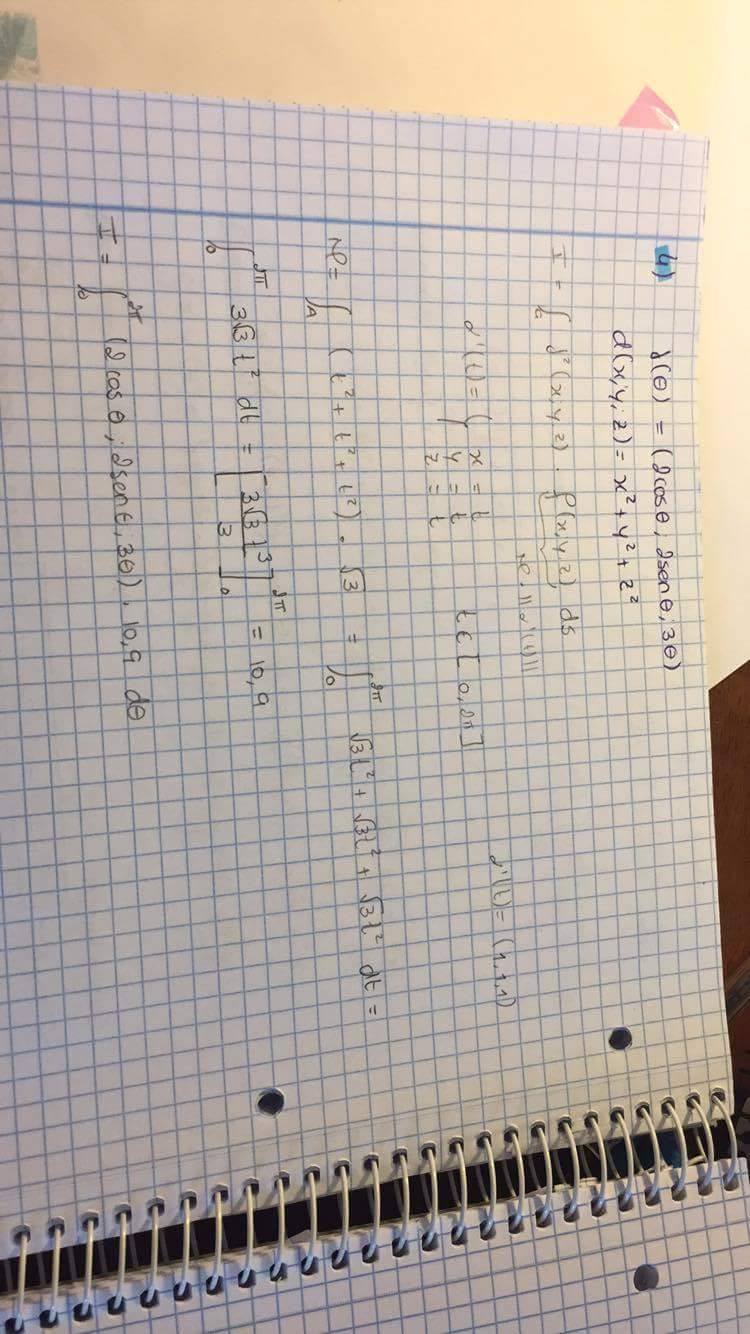 4) γ(θ) = (2cosθ; 2senθ; 3θ)
d(x,y,z) = x² + y² + z²
I = ∫ d²(x,y,z) · ρ(x,y,z) ds
· ||α'(t)||
α'(t) = { x = t
y = t
z = t
t ∈ [0, 2π]
α'(t) = (1,1,1)
= ∫_A (t² + t² + t²) · √3 = ∫_0^{2π} √3t² + √3t² + √3t² dt =
∫_0^{2π} 3√3 t² dt = [3√3 t³ / 3]_0^{2π} = 10,9
I = ∫_0^{2π} (2cosθ; 2senθ; 3θ) · 10,9 dθ